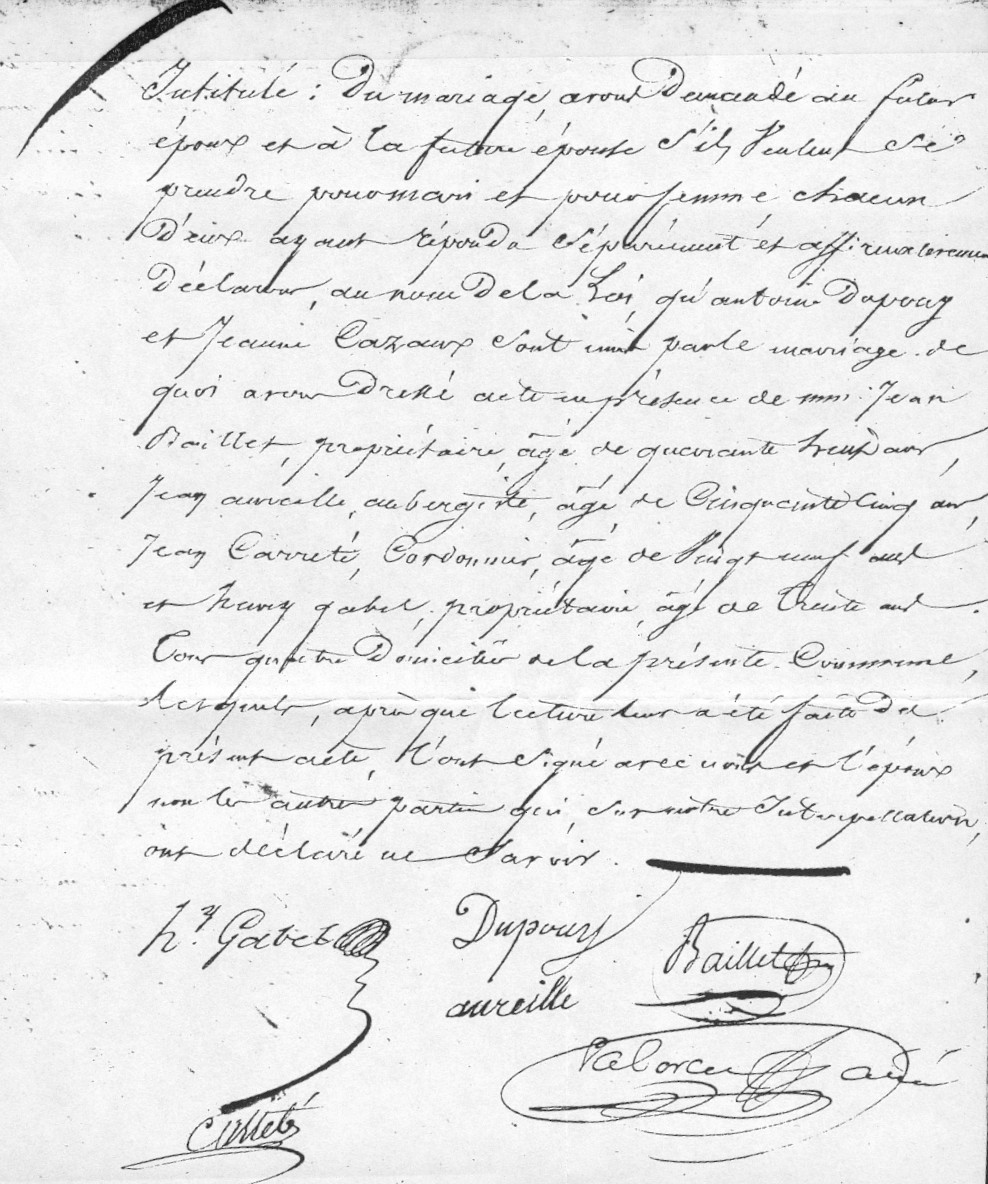 Intitulé : Du mariage, avons Demandé au futur
époux et à la future épouse S'ils Veulent Se
prendre pour mari et pour femme chacun
D'eux ayant répondu Séparément et affirmativement
Déclarons, au nom De la Loi, qu'antoine Dupouy
et Jeanne Cazaux Sont unis par le mariage. de
quoi avons Dressé acte en présence de mm. Jean
Baillet, propriétaire, âgé de quarante huit ans,
Jean aureille, aubergiste, âgé de Cinquante Cinq ans,
Jean Carreté, Cordonnier, âgé de Vingt neuf ans
et henry gabet, propriétaire, âgé de Trente ans.
Tous quatre Domiciliés de la présente Commune,
Lesquels, après que lecture leur a été faite du
présent acte, l'ont Signé avec nous et l'époux
non les autres parties qui, Sur notre Interpellation,
ont déclaré ne Savoir.
hy. Gabet Dupouy Baillet
aureille